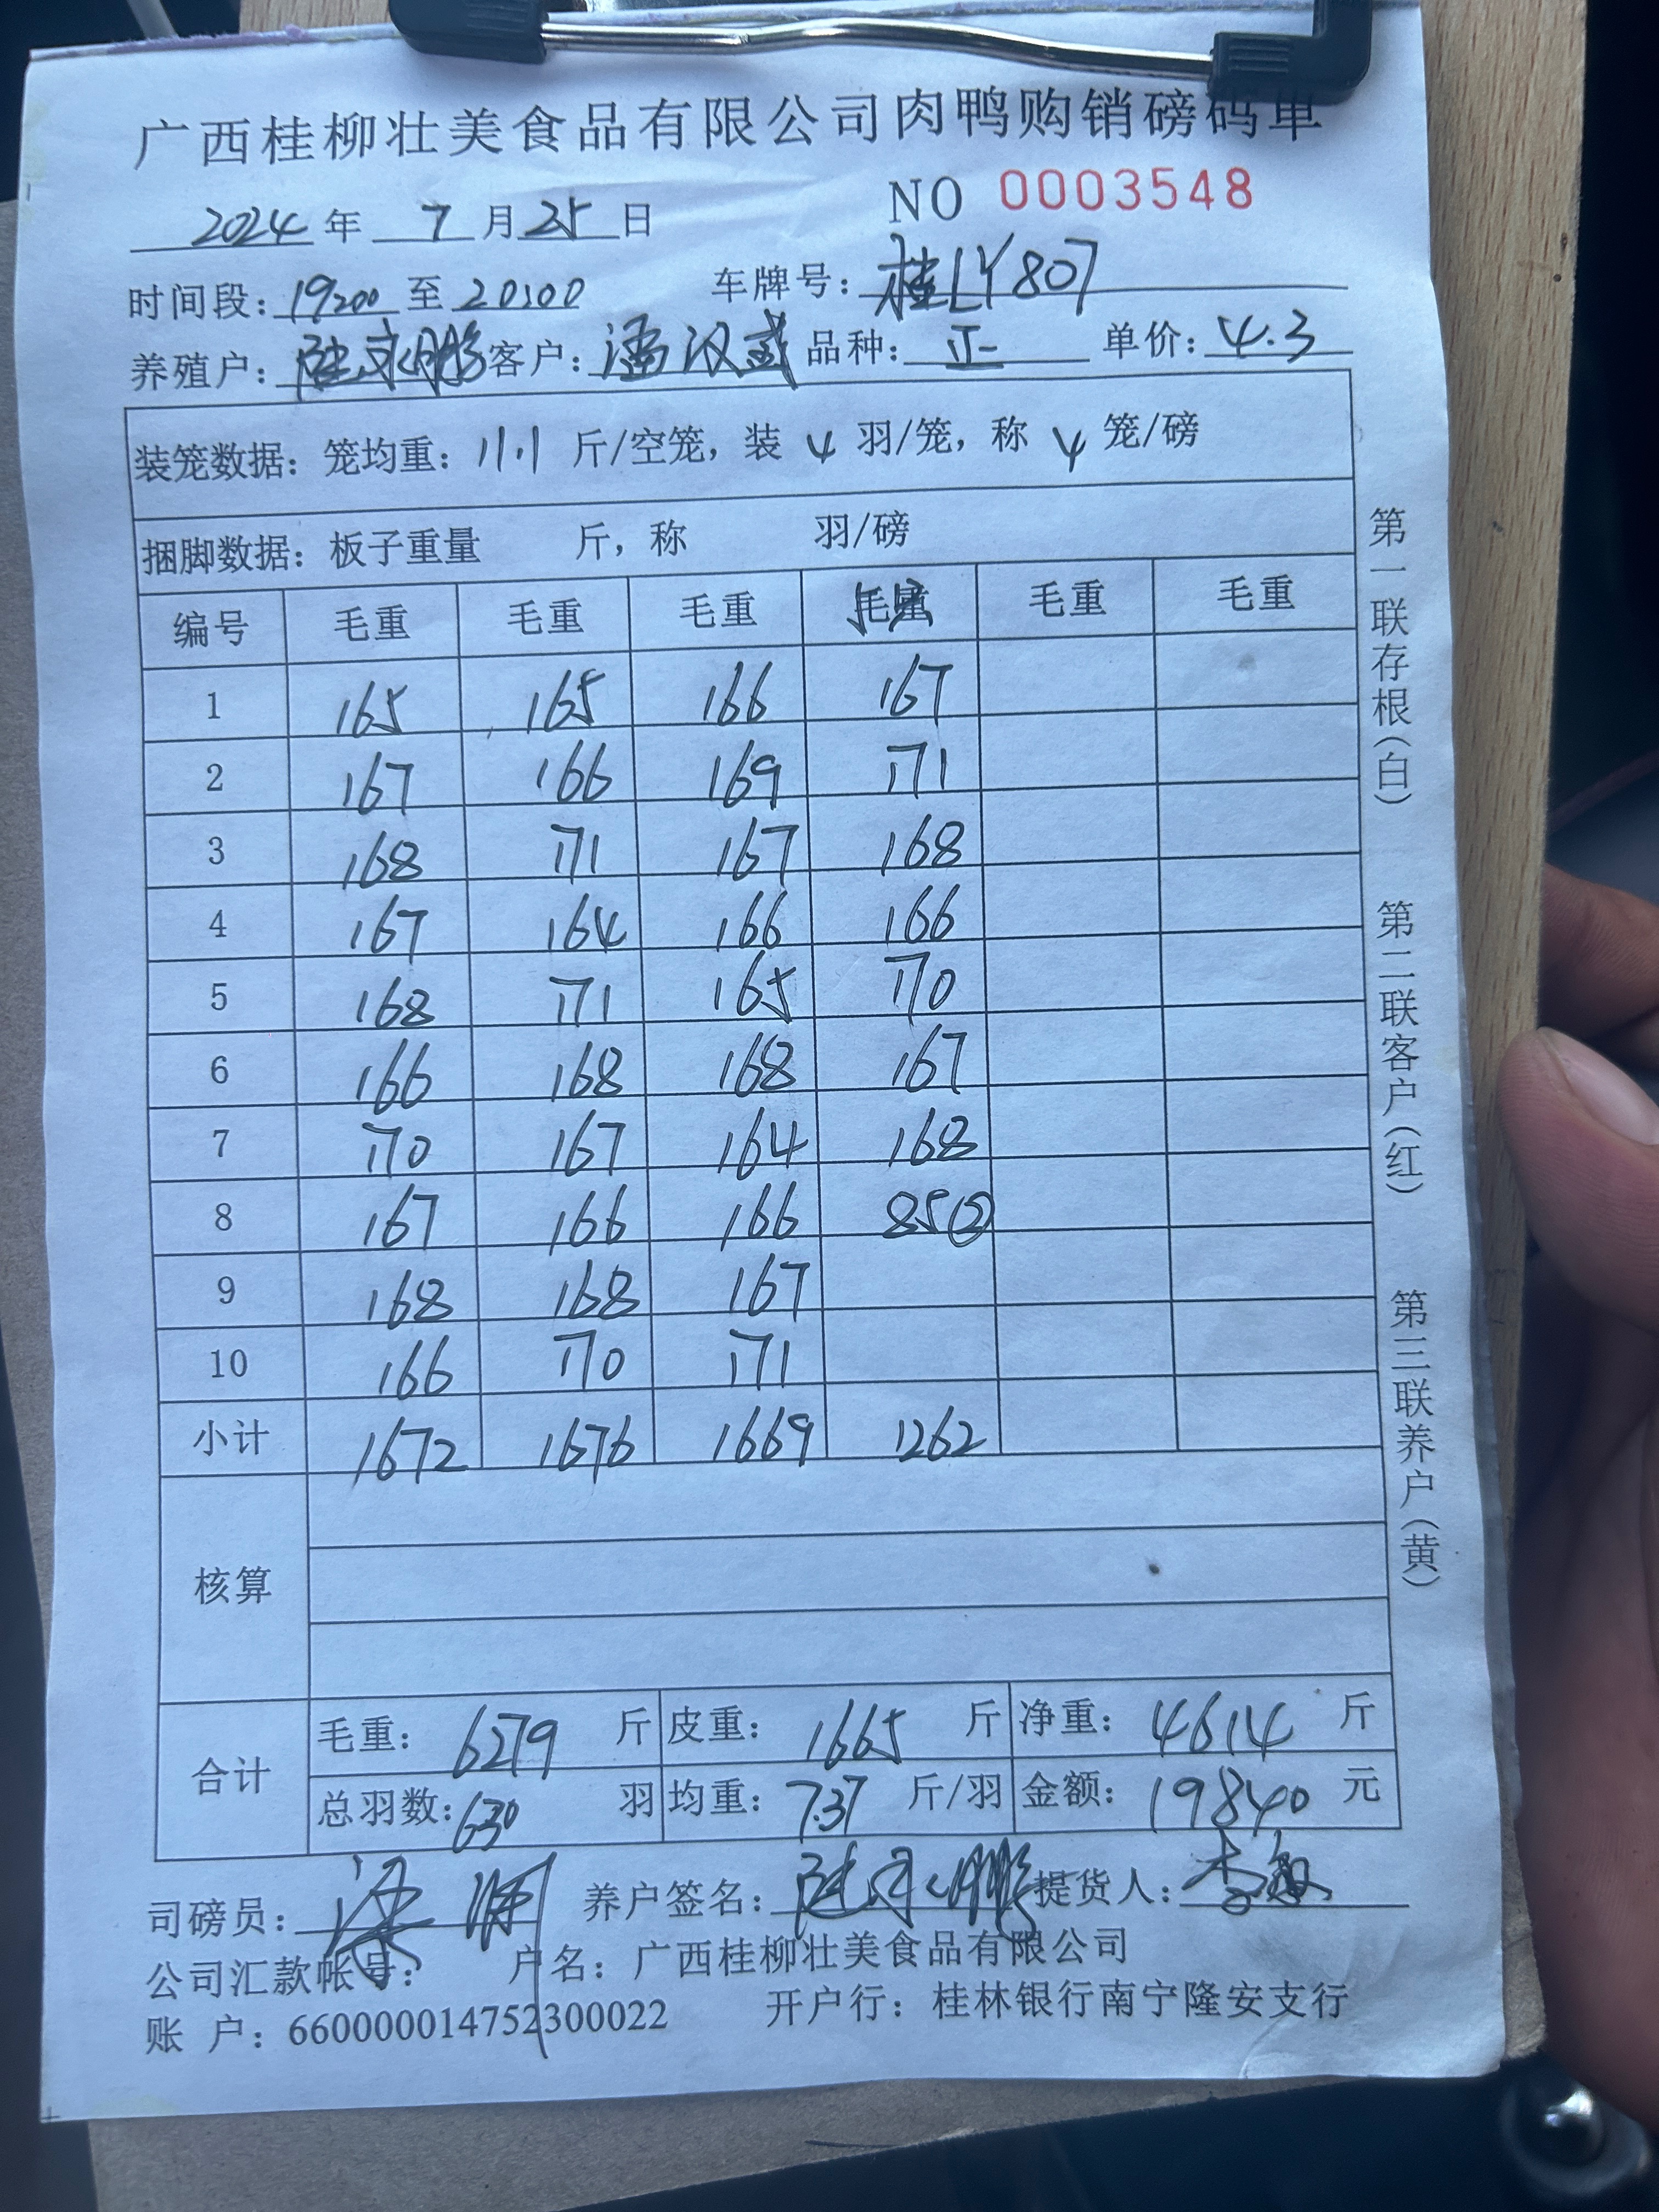 广西桂柳壮美食品有限公司肉鸭购销磅码单
NO 0003548
2024 年 7 月 25 日
时间段: 19:00 至 20:00 车牌号: 桂LY807
养殖户: 陆永鹏 客户: 潘汉盛 品种: 正 单价: 4.3
装笼数据: 笼均重: 11.1 斤/空笼, 装 4 羽/笼, 称 4 笼/磅
捆脚数据: 板子重量 斤, 称 羽/磅
编号 毛重 毛重 毛重 毛重 毛重 毛重
1 165 165 166 167
2 167 166 169 171
3 168 171 167 168
4 167 164 166 166
5 168 171 165 170
6 166 168 168 167
7 170 167 164 168
8 167 166 166 85②
9 168 168 167
10 166 170 171
小计 1672 1676 1669 1262
核算
合计
毛重: 6279 斤 皮重: 1665 斤 净重: 4614 斤
总羽数: 630 羽 均重: 7.37 斤/羽 金额: 19840 元
司磅员: 梁 养户签名: 陆永鹏 提货人: 李敏
公司汇款帐号: 户名: 广西桂柳壮美食品有限公司
账 户: 660000014752300022 开户行: 桂林银行南宁隆安支行
第一联存根(白) 第二联客户(红) 第三联养户(黄)